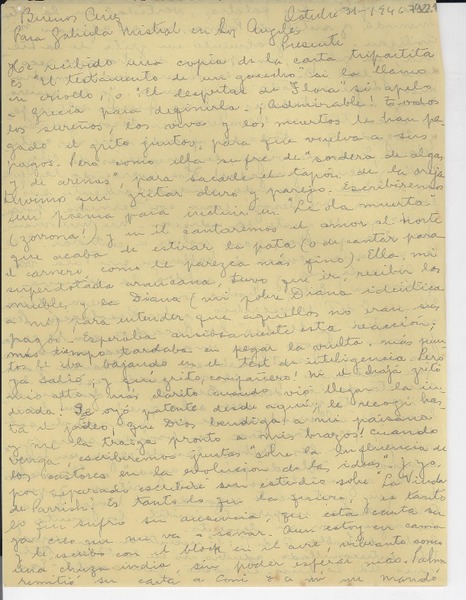 Buenos Aires Octubre 31-1946
Para Gabriela Mistral en Los Angeles
Presente
He recibido una copia de la carta tripartita
Es "El testamento de un gaucho" si la llamo
en criollo, o "El despertar de Flora" si apelo
a Grecia para definirla. ¡Admirable! todos
los sureños, los vivos y los muertos le han pe-
gado el grito juntos, para que vuelva a sus
pagos. Pero como ella sufre de "sordera de algas
y de arinas", para sacarle el tapón de la oreja
tuvimos que gritar duro y parejo. Escribiremos
un poema para incluir en "La ola muerta"
(zorrona!) y en él cantaremos el amor al Norte
que acaba de estirar la pata (o de cantar para
el carnero, como te parezca más fino). Ella, mi
superdotada araucana, tuvo que ir, recibir los
muebles y la Diana (mi pobre Diana idéntica
a mí) para entender que aquéllos no eran sus
pagos. Esperaba ansiosamente esta reacción;
más tiempo tardaba en pegar la vuelta, más pun-
tos le iba bajando en el test de inteligencia. Pero
ya salió, y qué grito, compañero! Ni el drajá gritó
más alto y más clarito cuando vió llegar la in-
diada! Se oyó patente desde aquí; le recogí has-
ta el jadeo; que Dios bendiga a mi paisana
y me la traiga pronto a mis brazos! Cuando
venga, escribiremos juntas "sobre la Influencia de
los castores en la evolución de las ideas". y yo,
por separado escribiré un estudio sobre "La viuda
de Parrish". Es tanto lo que la quiero, y es tanto
lo que sufro sin ausencia, que esta carta su-
ya creo que me va a sanar. Aun estoy en cama
y le escribo con el block en el aire, vibrante como
una chuza india, sin poder esperar más. Palma
remitió su carta a Coni y a mí me mandó